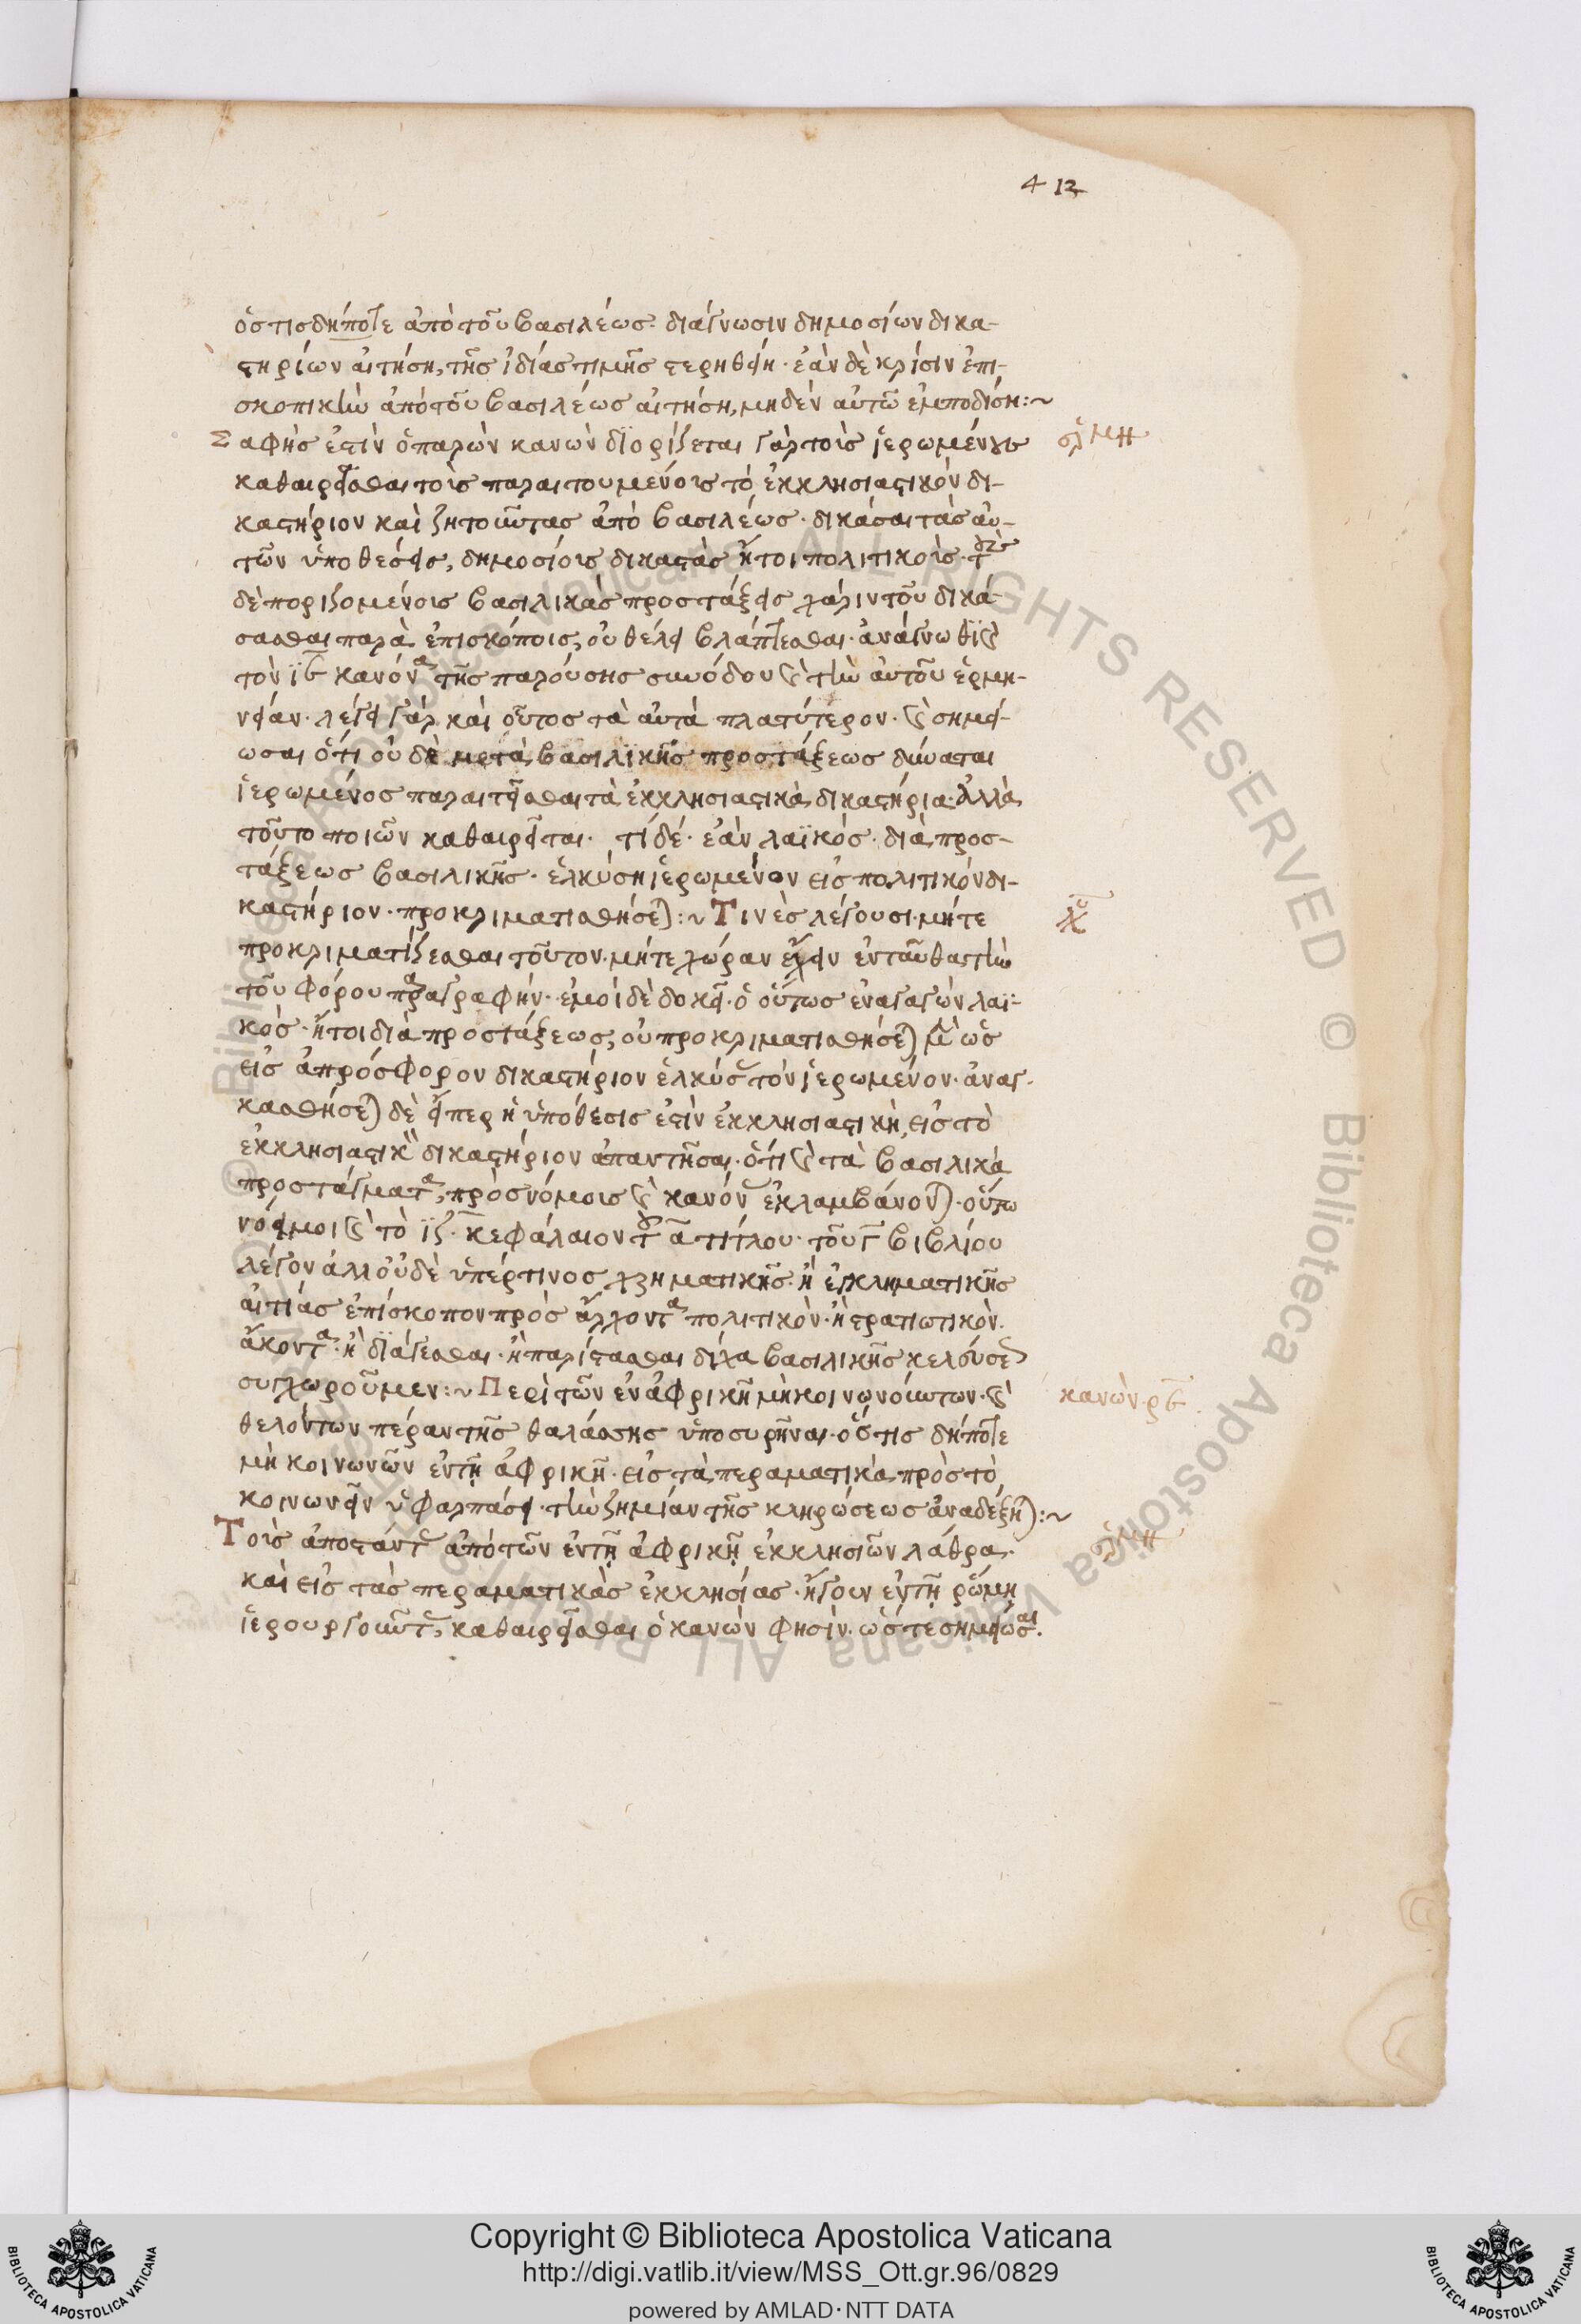 412
ὁστισδήποτε ἀπὸ τοῦ βασιλέως διάγνωσιν δημοσίων δικα-
στηρίων αἰτήση, τῆς ἰδίας τιμῆς στερηθείη· ἐὰν δὲ κρίσιν ἐπι-
σκοπικὴν ἀπὸ τοῦ βασιλέως αἰτήση, μηδὲν αὐτῶ ἐμποδίση:~
Σαφής ἐστιν ὁ παρὼν κανὼν διορίζεται γὰρ τοῖς ἱερωμένοις
καθαιρεῖσθαι τοῖς παραιτουμένοις τὸ ἐκκλησιαστικὸν δι-
καστήριον καὶ ζητοῦντας ἀπὸ βασιλέως· δικάσαι τὰς αὐ-
τῶν ὑποθέσεις, δημοσίοις δικαστὰς ἤτοι πολιτικοῖς· τοὺς
δὲ ποριζομένοις βασιλικὰς προστάξεις χάριν τοῦ δικά-
σασθαι παρὰ ἐπισκόποις, οὐ θέλει βλάπτεσθαι· ἀνάγνωθι καὶ
τὸν ιβ κανόνα τῆς παρούσης συνόδου καὶ τὴν αὐτοῦ ἑρμη-
νείαν· λέγει γὰρ καὶ οὗτος τὰ αὐτὰ πλατύτερον· καὶ σημεί-
ωσαι ὅτι οὐδὲ μετὰ βασιλικῆς προστάξεως δύναται
ἱερωμένος παραιτεῖσθαι τὰ ἐκκλησιαστικὰ δικαστήρια· ἀλλὰ
τοῦτο ποιῶν καθαιρεῖται· τί δέ· ἐὰν λαϊκός· διὰ προσ-
τάξεως βασιλικῆς· ἑλκύση ἱερωμένον εἰς πολιτικὸν δι-
καστήριον· προκριματισθήσεται:~ Τινὲς λέγουσι· μήτε
προκριματίζεσθαι τοῦτον· μήτε χώραν ἔχειν ἐνταῦθα τὴν
τοῦ φόρου παραγραφήν· ἐμοὶ δὲ δοκεῖ· ὁ οὕτως ἐναγαγὼν λαϊ-
κὸς· ἤτοι διὰ προστάξεως, οὐ προκριματισθήσεται μὲν ὡς
εἰς ἀπρόσφορον δικαστήριον ἑλκύσας τὸν ἱερωμένον· ἀναγ-
κασθήσεται δὲ εἴπερ ἡ ὑπόθεσις ἐστὶν ἐκκλησιαστικὴ, εἰς τὸ
ἐκκλησιαστικὸν δικαστήριον ἀπαντῆσαι· ὅτι καὶ τὰ βασιλικὰ
προστάγματα, πρὸς νόμοις καὶ κανόνας ἐκλαμβάνονται· οὕτω
νόει μοι καὶ τὸ ιζ· κεφάλαιον τοῦ α τίτλου· τοῦ γ βιβλίου
λέγον ἀλλ' οὐδὲ ὑπέρ τινος χρηματικῆς· ἢ ἐγκληματικῆς
αἰτίας ἐπίσκοπον πρὸς ἄρχοντα πολιτικὸν· ἢ στρατιωτικὸν·
ἄκοντα· ἢ διάγεσθαι· ἢ παρίστασθαι δίχα βασιλικῆς κελεύσεως
συγχωροῦμεν:~ Περὶ τῶν ἐν ἀφρικῆ μὴ κοινωνούντων· καὶ
θελόντων πέραν τῆς θαλάσσης ὑποσυρῆναι· ὅστις δήποτε
μὴ κοινωνῶν ἐν τῆ ἀφρικῆ· εἰς τὰ περαματικὰ πρὸς τὸ
κοινωνεῖν ὑφαρπάσει· τὴν ζημίαν τῆς κληρώσεως ἀναδέξηται:~
Τοῖς ἀποστάντας ἀπὸ τῶν ἐν τῆ ἀφρικῆ ἐκκλησιῶν λάθρα·
καὶ εἰς τὰς περαματικὰς ἐκκλησίας· ἤγουν ἐν τῆ ῥώμη
ἱερουργοῦντας, καθαιρεῖσθαι ὁ κανών φησιν· ὥστε σημείωσαι.
κανὼν ρϛ
Copyright © Biblioteca Apostolica Vaticana
http://digi.vatlib.it/view/MSS_Ott.gr.96/0829
powered by AMLAD·NTT DATA